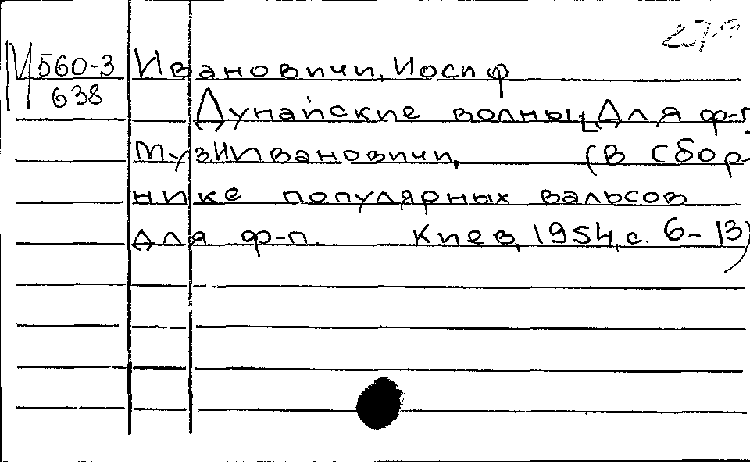 М 560-3 Ивановичи, Иосиф
638
Дунайские волны [Для ф-п.
Муз. Ивановичи, (в сбор
нике популярных вальсов
для ф-п. Киев, 1954, с. 6-13)